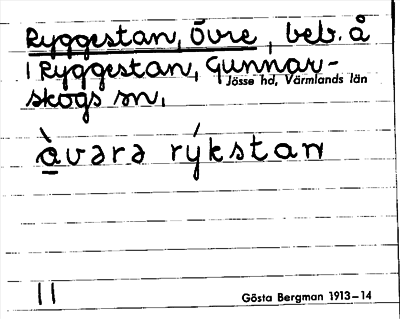 Ryggestan, Övre, beb. å
1 Ryggestan, Gunnar-
Jösse hd, Värmlands län
skogs sn.
àvəra rýkstan
11
Gösta Bergman 1913–14